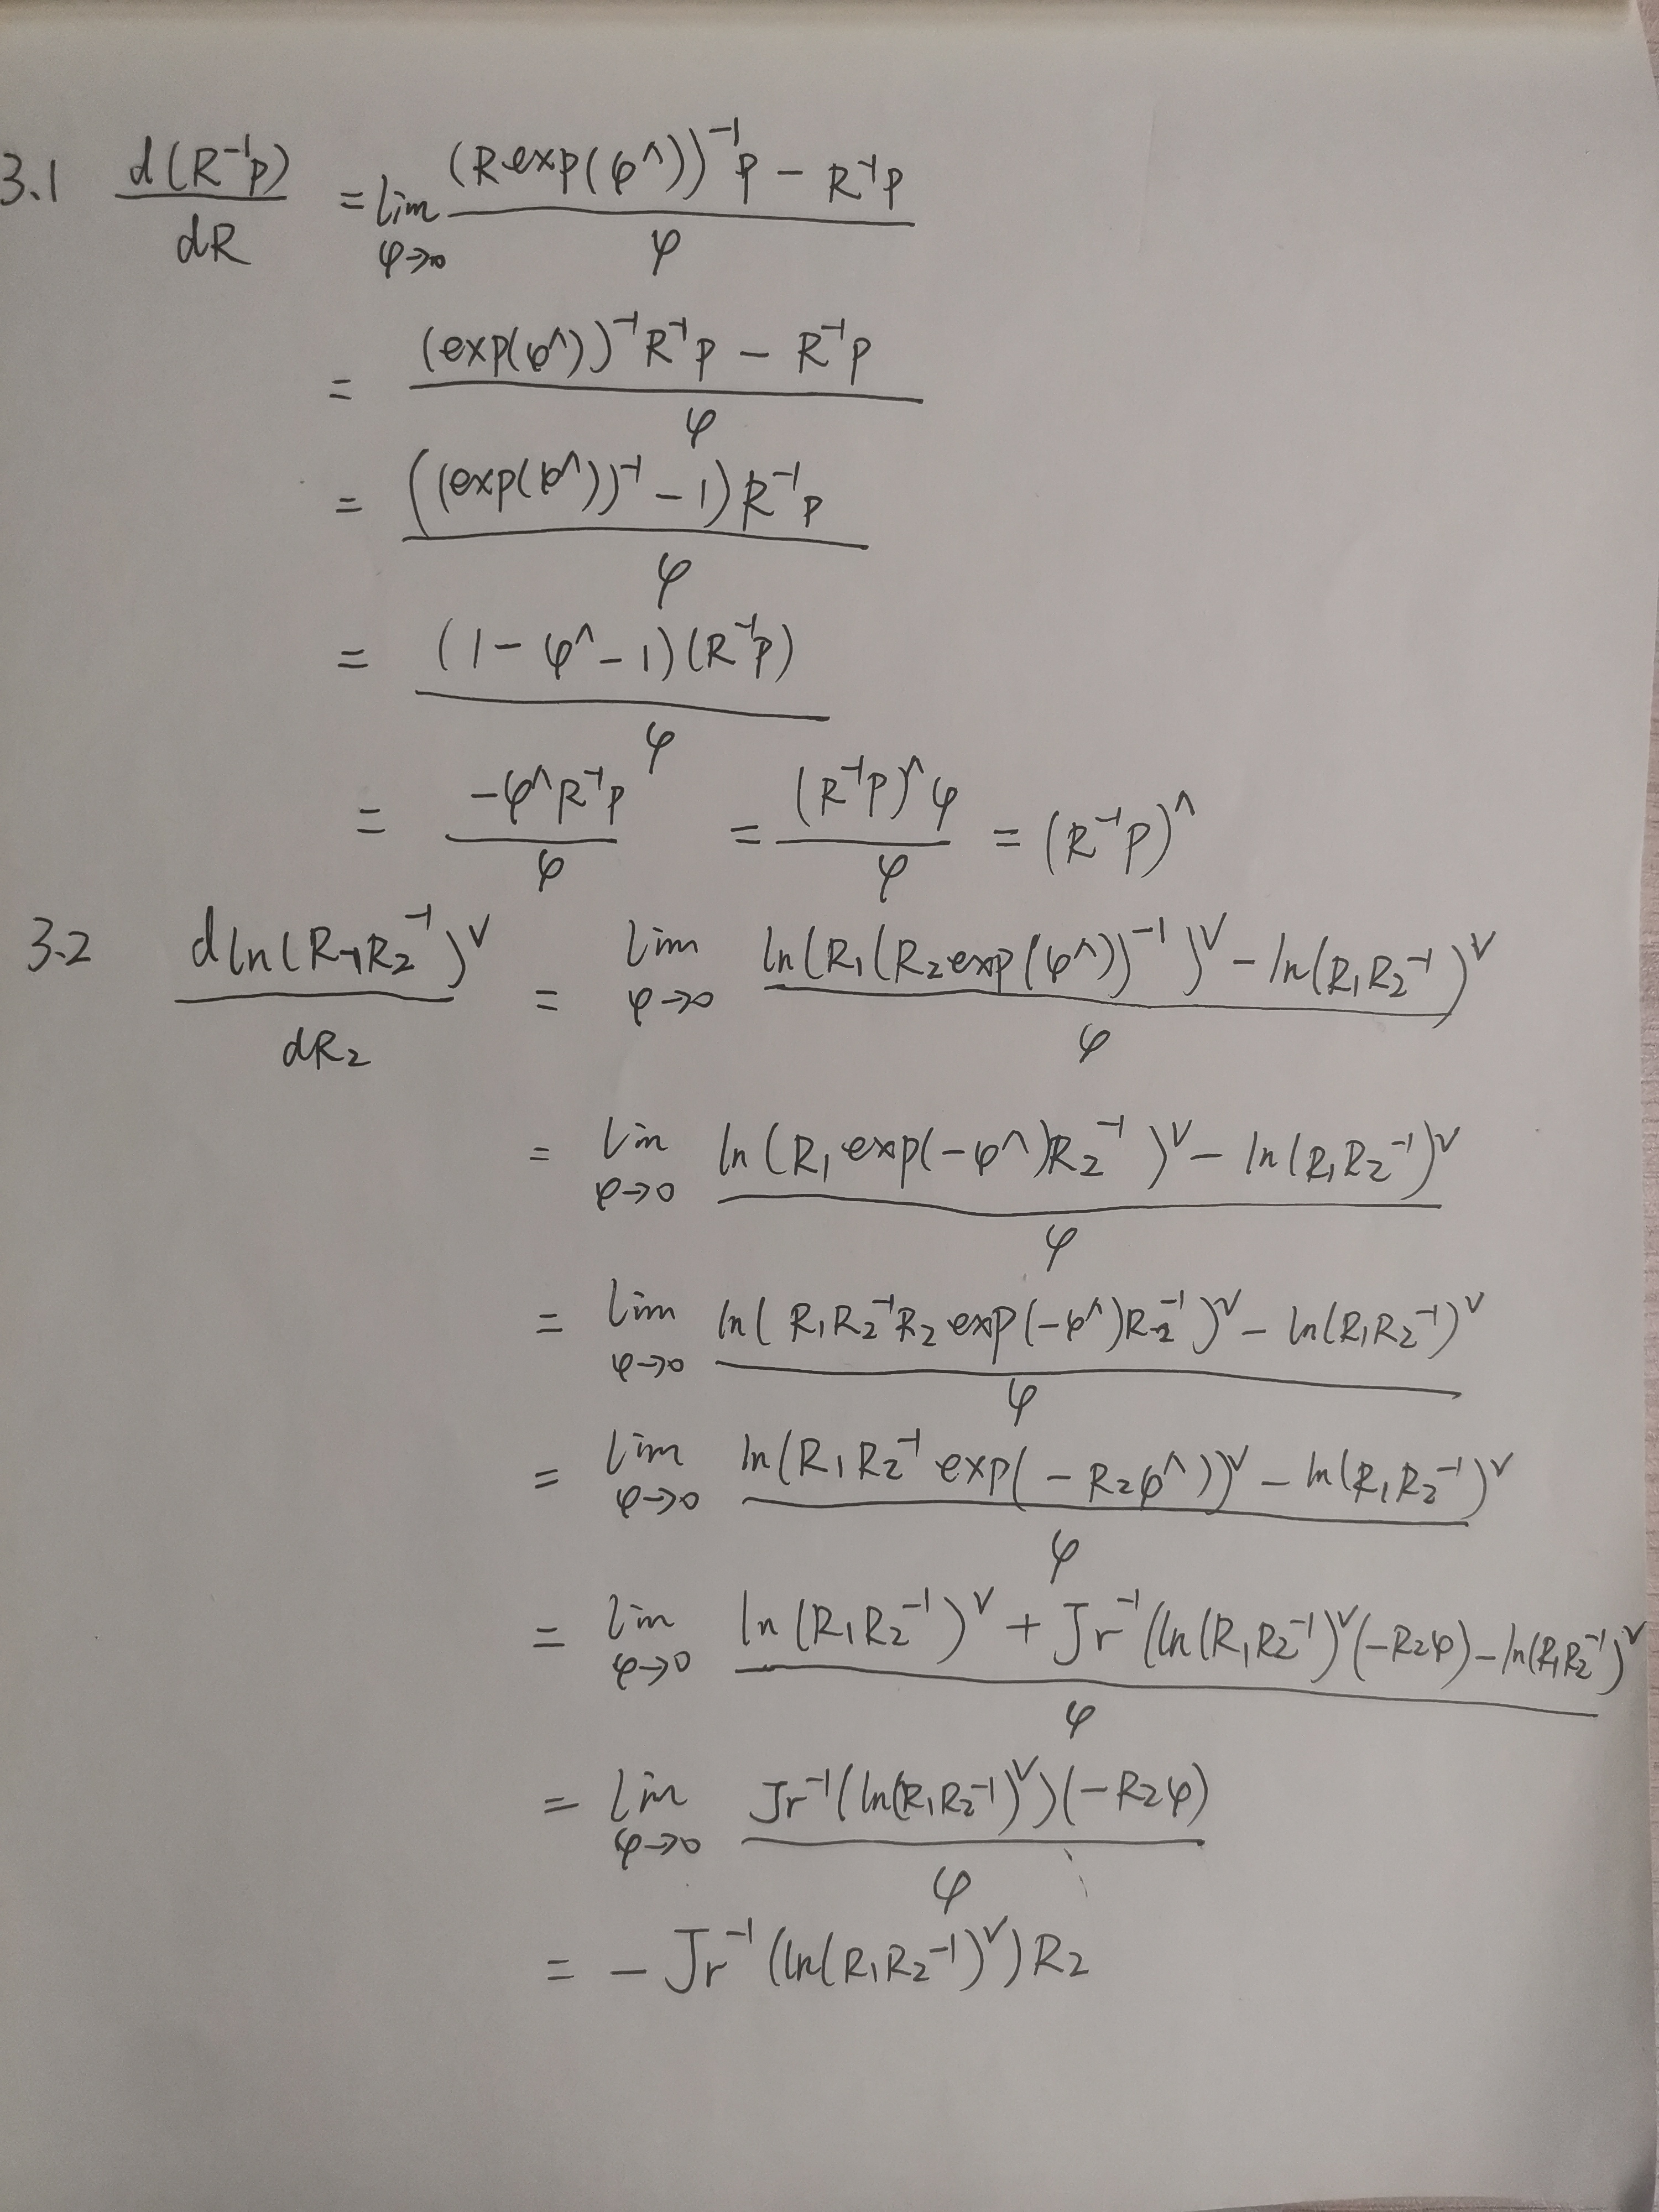 3.1 d(R⁻¹p)/dR = lim_{φ→0} ((R exp(φ^))⁻¹p − R⁻¹p)/φ
= ((exp(φ^))⁻¹R⁻¹p − R⁻¹p)/φ
= ((exp(φ^))⁻¹ − 1)R⁻¹p/φ
= (1 − φ^ − 1)(R⁻¹p)/φ
= −φ^R⁻¹p/φ = (R⁻¹p)^φ/φ = (R⁻¹p)^
3.2 d ln(R₁R₂⁻¹)^∨/dR₂ = lim_{φ→0} (ln(R₁(R₂exp(φ^))⁻¹)^∨ − ln(R₁R₂⁻¹)^∨)/φ
= lim_{φ→0} (ln(R₁exp(−φ^)R₂⁻¹)^∨ − ln(R₁R₂⁻¹)^∨)/φ
= lim_{φ→0} (ln(R₁R₂⁻¹R₂exp(−φ^)R₂⁻¹)^∨ − ln(R₁R₂⁻¹)^∨)/φ
= lim_{φ→0} (ln(R₁R₂⁻¹exp(−R₂φ^))^∨ − ln(R₁R₂⁻¹)^∨)/φ
= lim_{φ→0} (ln(R₁R₂⁻¹)^∨ + Jr⁻¹(ln(R₁R₂⁻¹)^∨(−R₂φ) − ln(R₁R₂⁻¹)^∨)/φ
= lim_{φ→0} Jr⁻¹(ln(R₁R₂⁻¹)^∨)(−R₂φ)/φ
= −Jr⁻¹(ln(R₁R₂⁻¹)^∨)R₂